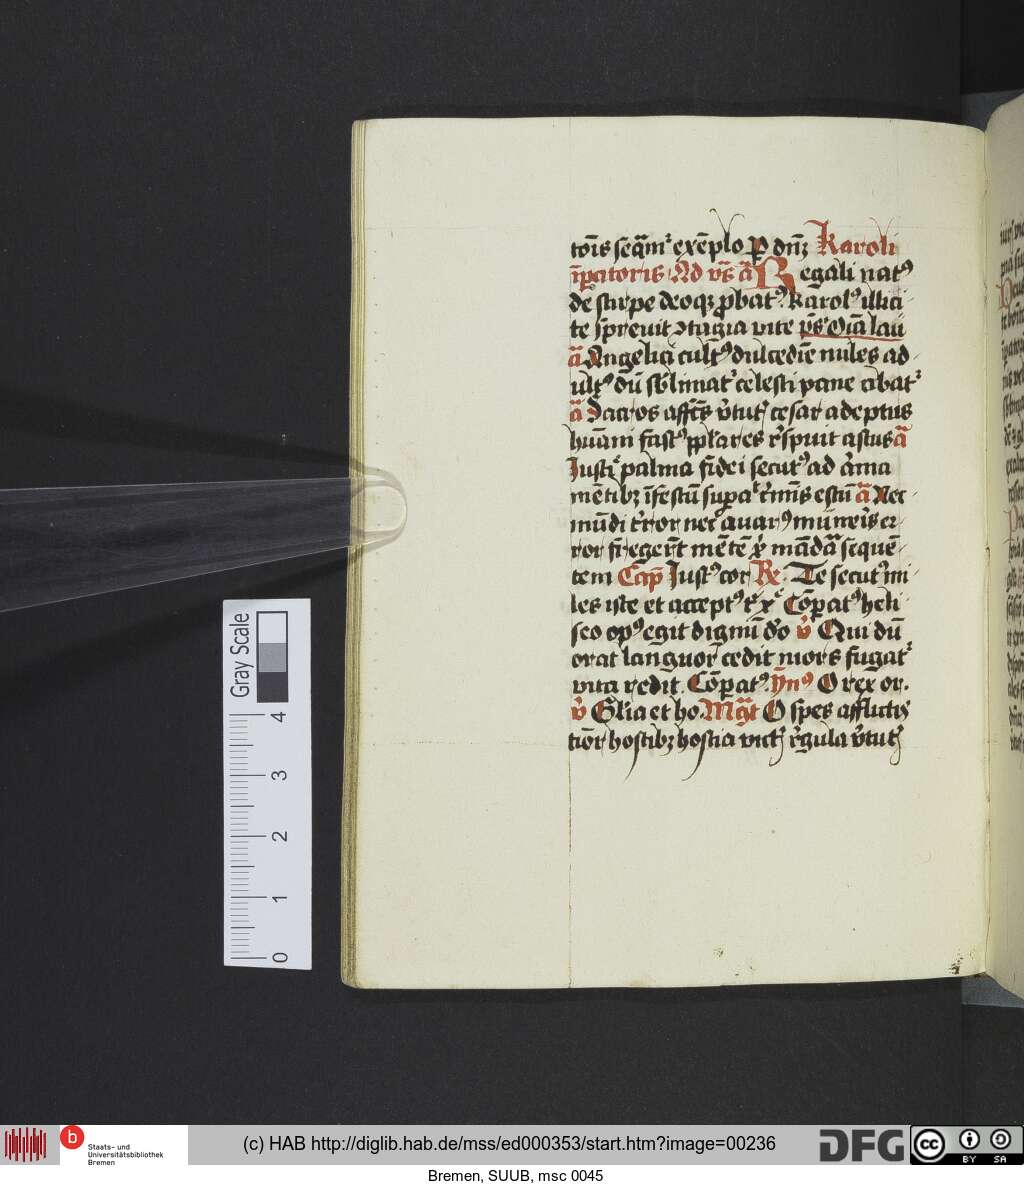 toīs seq̄mʳ exēplo ꝑ dn̄ꝫ Karoli
īpatoris Ad vꝰs ā Regali natꝰ
de stirpe deoqꝫ ꝓbatꝰ karolꝰ illici
te spreuit ɔtagia vite p̄s Oīa lau
ā Angelici cultꝰ dulcedīe miles ad-
ultꝰ dū sb̄limatʳ celesti pane cibatʳ
ā Sacros affc̄s v̄tutꝭ cesar adeptus
hūani fastꝰ pplares rˢpuit astus ā
Iusti palma fidei secutꝰ ad
mētibꝫ īfestū supat estū ā Nec
mūdi t̄ror nec auarꝰ mūneris er-
ror fregert mētē mādā sequē-
tem Cap̄ Iustꝰ cor Re. Te secutꝰ mi-
les iste et acceptꝰ Cōpatꝰ heli
seo opꝰ egit dignū do v̄ Qui dū
orat languor cedit mors fugatʳ
vita redit. Cōpatꝰ. ẏmnꝰ O rex or.
v̄ Glia et ho. Mag̅t O spes afflictis
tior hostibꝫ hostia victꝭ rˢgula v̄tutꝭ
Gray Scale
0 1 2 3 4
b
Staats- und
Universitätsbibliothek
Bremen
(c) HAB http://diglib.hab.de/mss/ed000353/start.htm?image=00236
DFG
cc BY SA
Bremen, SUUB, msc 0045